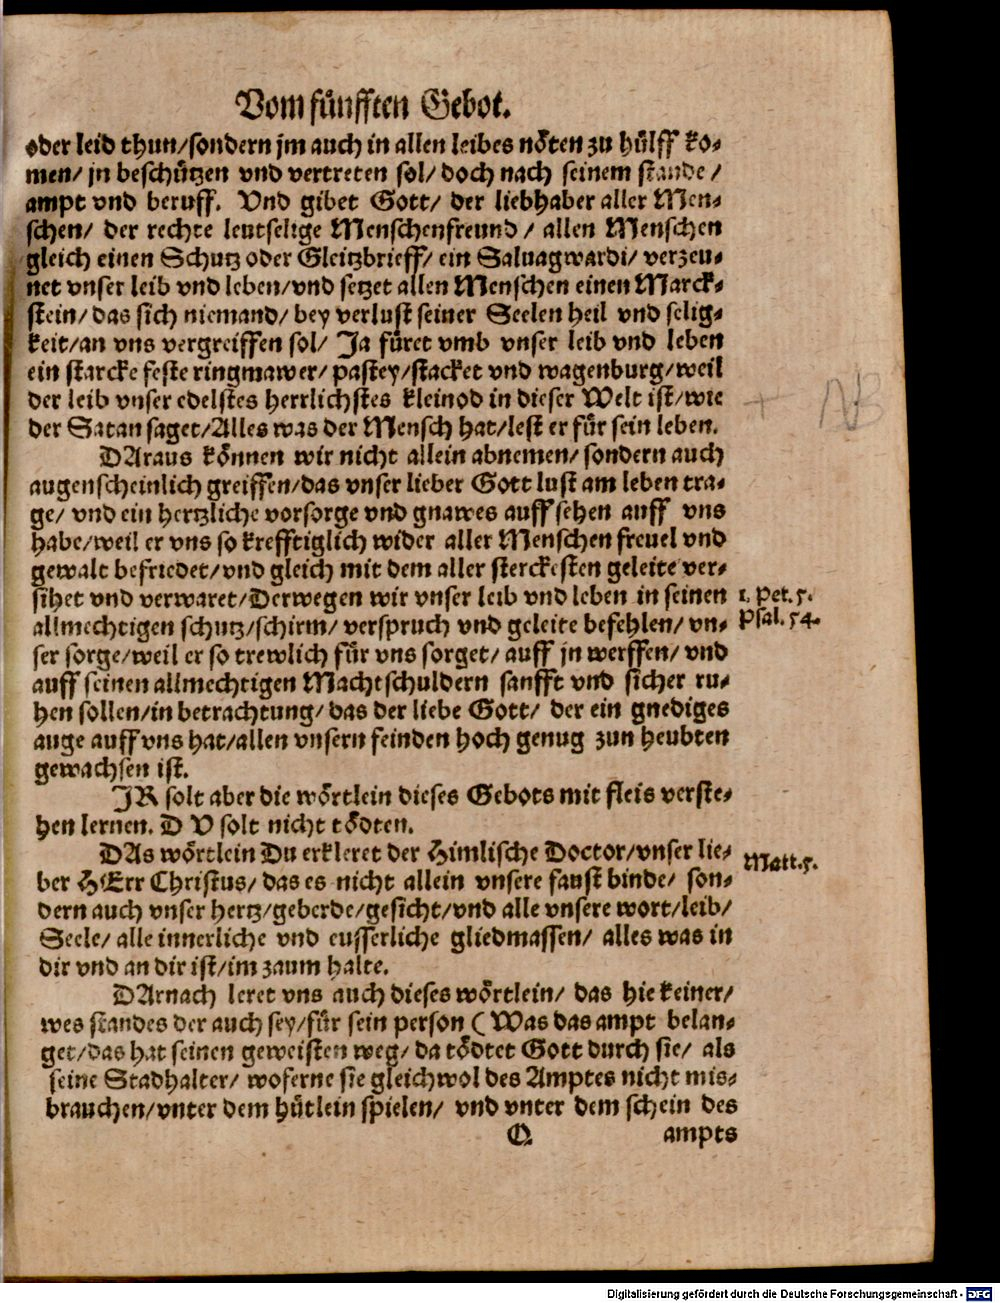 Vom fünfften Gebot.
oder leid thun/sondern jm auch in allen leibes nöten zu hülff ko-
men/ jn beschützen vnd vertreten sol/ doch nach seinem stande/
ampt vnd beruff. Vnd gibet Gott/ der liebhaber aller Men-
schen/ der rechte leutselige Menschenfreund/ allen Menschen
gleich einen Schutz oder Gleitzbrieff/ ein Saluagwardi/ verzeu-
net vnser leib vnd leben/vnd setzet allen Menschen einen Marck-
stein/das sich niemand/ bey verlust seiner Seelen heil vnd selig-
keit/an vns vergreiffen sol/ Ja füret vmb vnser leib vnd leben
ein starcke feste ringmawer/ pastey/stacket vnd wagenburg/weil
der leib vnser edelstes herrlichstes kleinod in dieser Welt ist/wie
der Satan saget/Alles was der Mensch hat/lest er für sein leben.
DAraus können wir nicht allein abnemen/ sondern auch
augenscheinlich greiffen/das vnser lieber Gott lust am leben tra-
ge/ vnd ein hertzliche vorsorge vnd gnawes auffsehen auff vns
habe/weil er vns so krefftiglich wider aller Menschen freuel vnd
gewalt befriedet/vnd gleich mit dem aller sterckesten geleite ver-
sihet vnd verwaret/Derwegen wir vnser leib vnd leben in seinen
allmechtigen schutz/schirm/ verspruch vnd geleite befehlen/ vn-
ser sorge/weil er so trewlich für vns sorget/ auff jn werffen/ vnd
auff seinen allmechtigen Machtschuldern sanfft vnd sicher ru-
hen sollen/in betrachtung/ das der liebe Gott/ der ein gnediges
auge auff vns hat/allen vnsern feinden hoch genug zun heubten
gewachsen ist.
1. Pet. 5.
Psal. 54.
JR solt aber die wörtlein dieses Gebots mit fleis verste-
hen lernen. D V solt nicht tödten.
DAs wörtlein Du erkleret der Himlische Doctor/vnser lie-
ber HErr Christus/ das es nicht allein vnsere faust binde/ son-
dern auch vnser hertz/geberde/gesicht/vnd alle vnsere wort/leib/
Seele/ alle innerliche vnd eusserliche gliedmassen/ alles was in
dir vnd an dir ist/im zaum halte.
Matt. 5.
DArnach leret vns auch dieses wörtlein/ das hie keiner/
wes standes der auch sey/für sein person (Was das ampt belan-
get/das hat seinen geweisten weg/ da tödtet Gott durch sie/ als
seine Stadhalter/ woferne sie gleichwol des Amptes nicht mis-
brauchen/vnter dem hütlein spielen/ vnd vnter dem schein des
Q ampts
+ NB
Digitalisierung gefördert durch die Deutsche Forschungsgemeinschaft - DFG